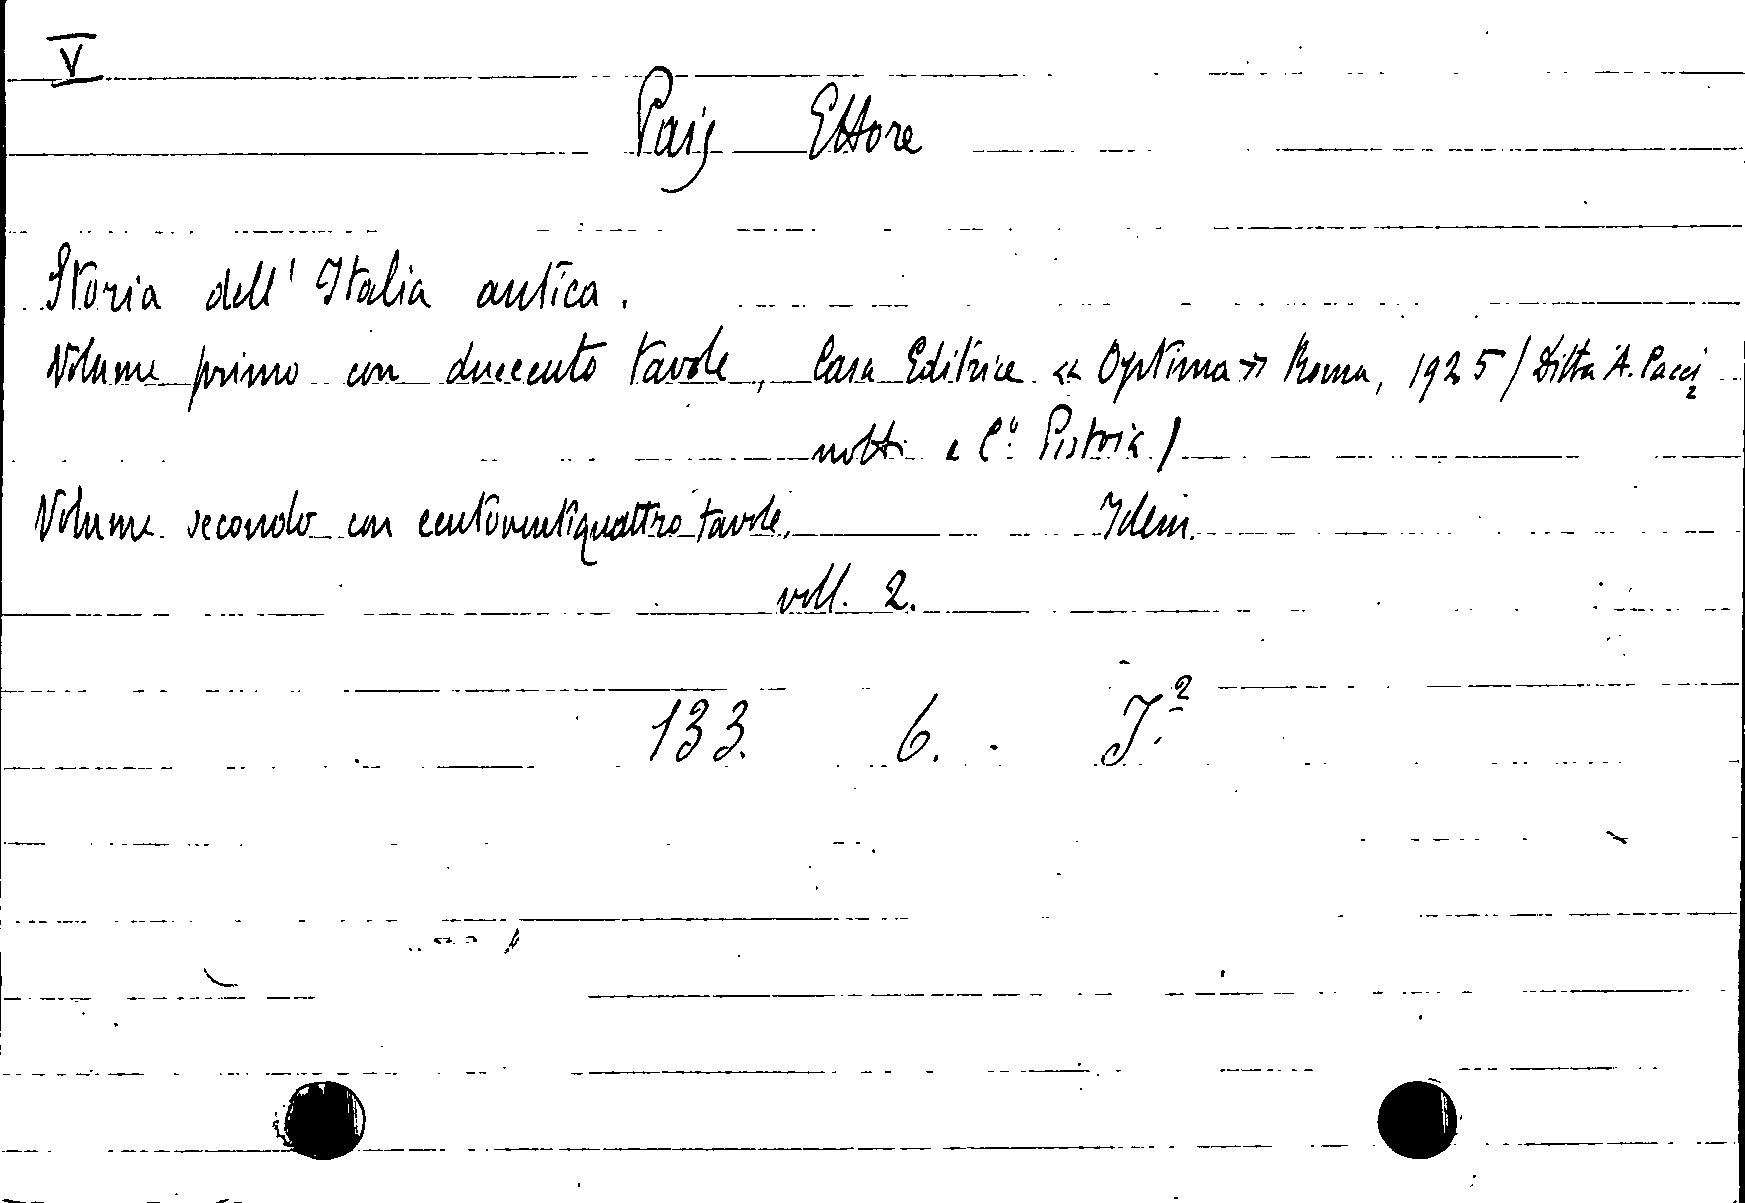 V
Pais Ettore
Storia dell' Italia antica.
Volume primo con duecento tavole, Casa Editrice « Optima » Roma, 1925 / Ditta A. Pacci=
notti e C.° Pistoia /
Volume secondo con centoventiquattro tavole. Idem.
voll. 2.
133. 6. I.²